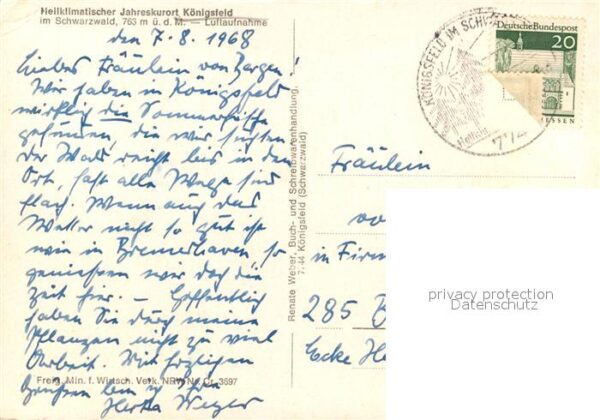 Heilklimatischer Jahreskurort Königsfeld
im Schwarzwald, 763 m ü. d. M. — Luftaufnahme
den 7.8.1968
Liebes Fräulein von Bergen!
Wir haben in Königsfeld
wirklich die Sommerfrische
gefunden, die wir suchten
der Wald reicht bis in den
Ort, fast alle Wege sind
flach. Wenn auch das
Wetter nicht so gut ist
wie in Bremerhaven, so
geniessen wir doch die
Zeit hier. — Hoffentlich
haben Sie durch meine
Pflanzen nicht zu viel
Arbeit. Mit herzlichen
Grüssen bin ich Ihre
Herta Weyer
Freig. Min. f. Wirtsch. Verk. NRW Nr. Cr. 3697
Renate Weber, Buch- und Schreibwarenhandlung,
7744 Königsfeld (Schwarzwald)
KÖNIGSFELD IM SCHWA
Deutsche Bundespost
20
ESSEN
Fräulein
vo
in Firm
285 B
Ecke He
privacy protection
Datenschutz